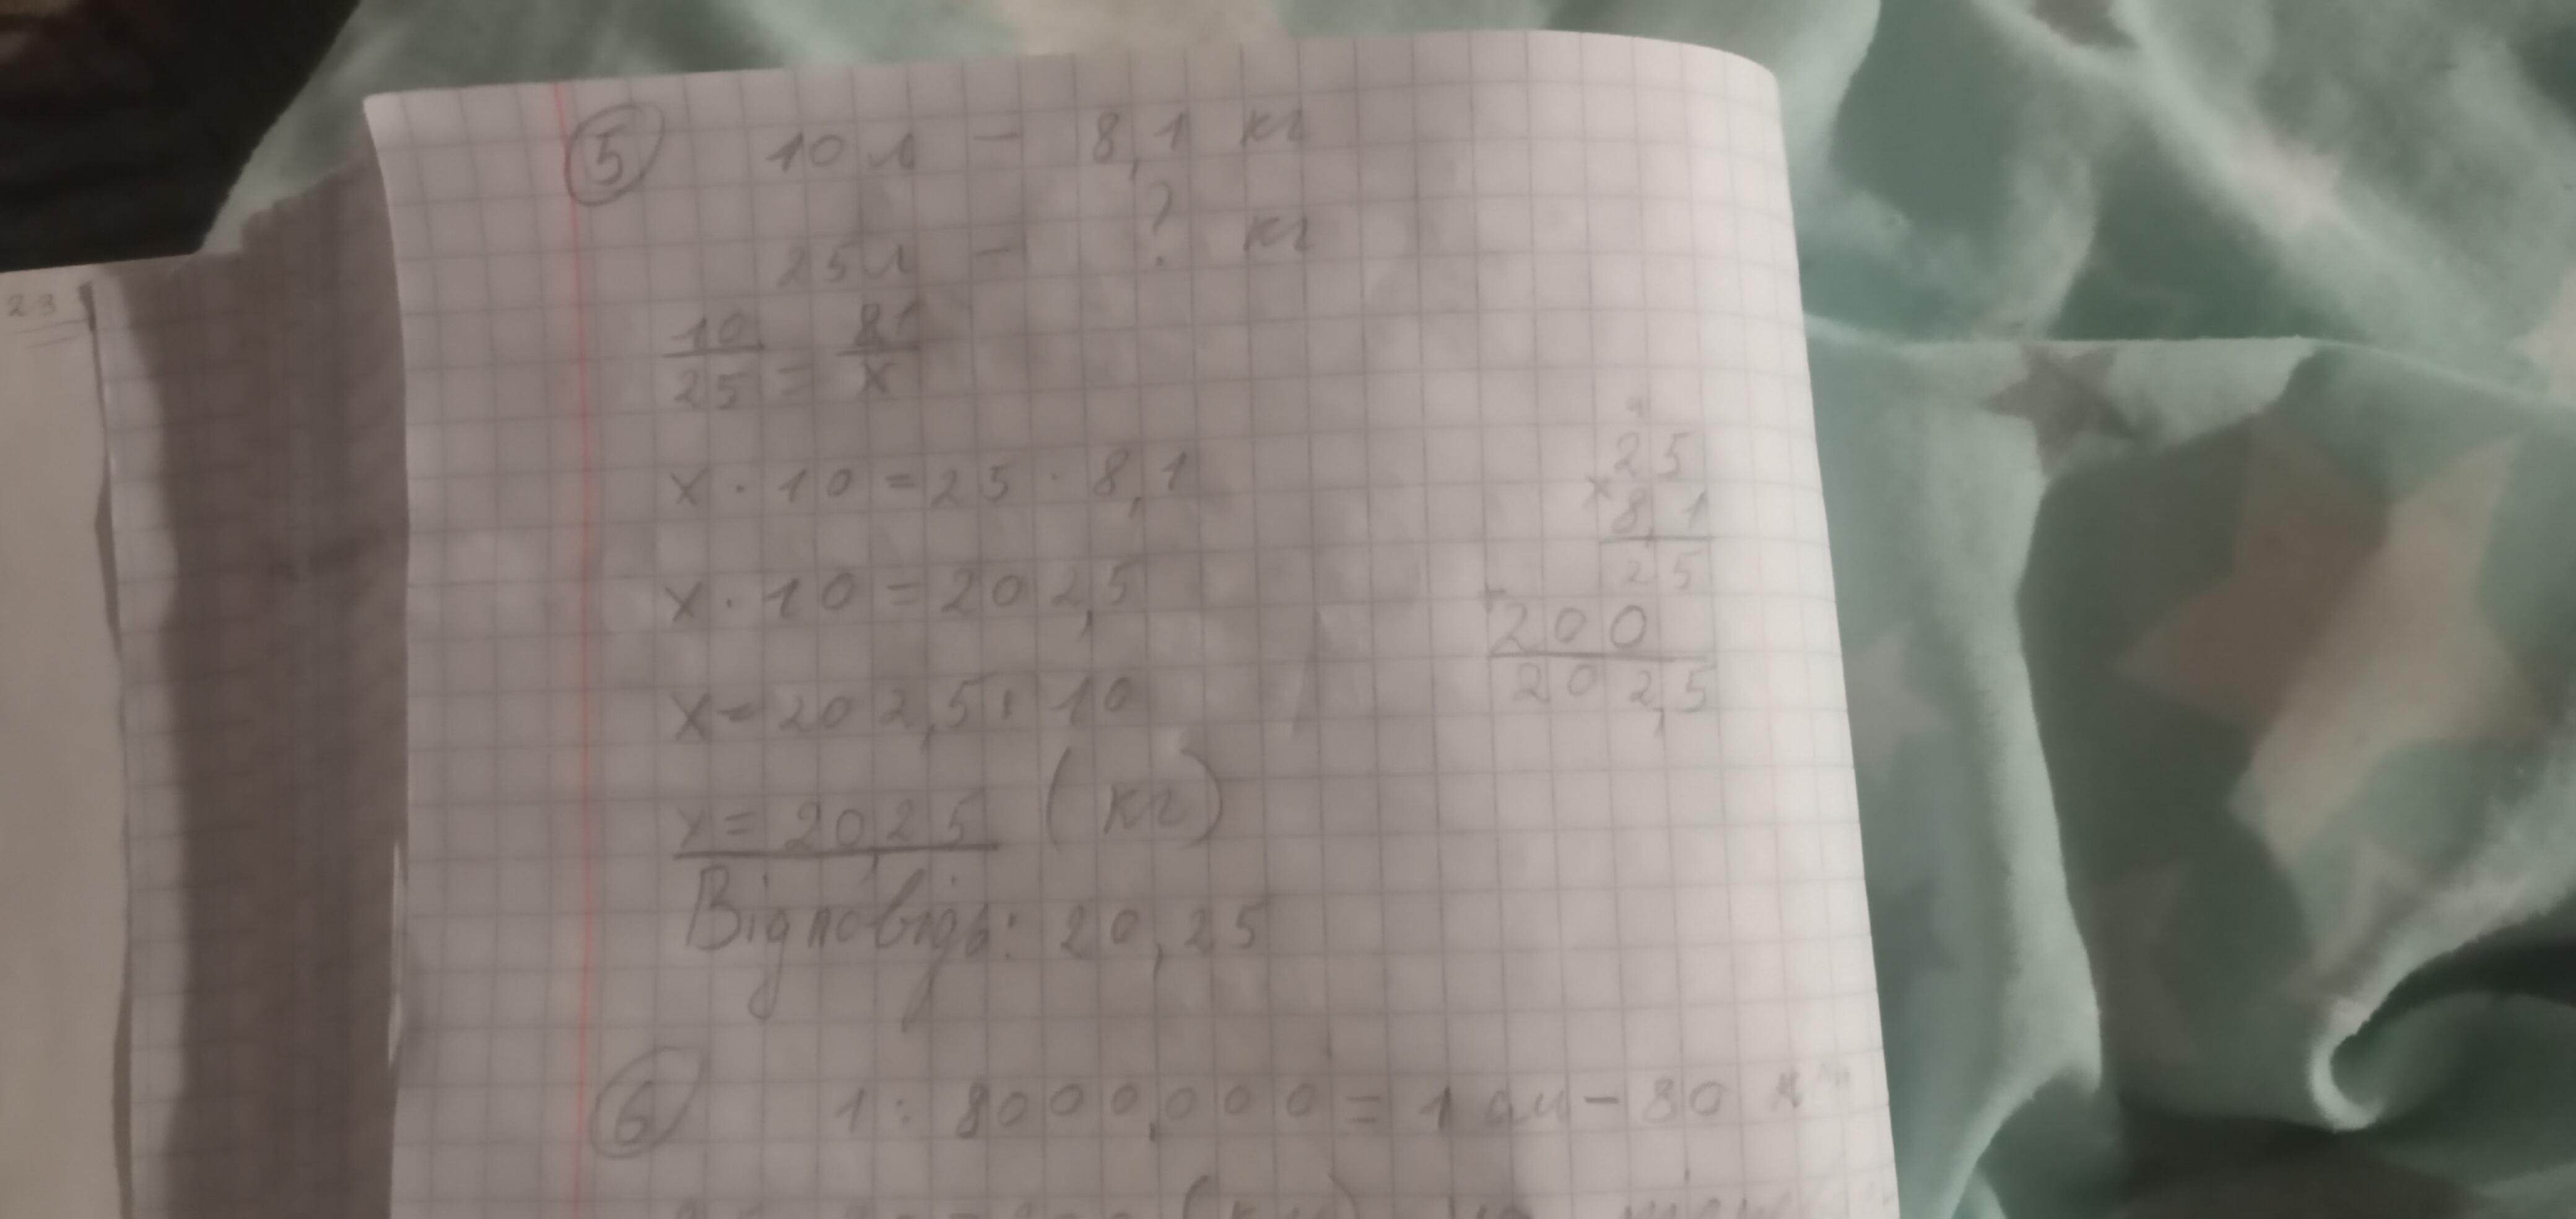 23
5 10 л – 8,1 кг
25 л – ? кг
10 81
25 = x
x · 10 = 25 · 8,1
x · 10 = 202,5
x = 202,5 : 10
x = 20,25 (кг)
Відповідь: 20,25
25
× 8,1
25
+ 200
202,5
6 1 : 8000,000 = 1 см – 80 км